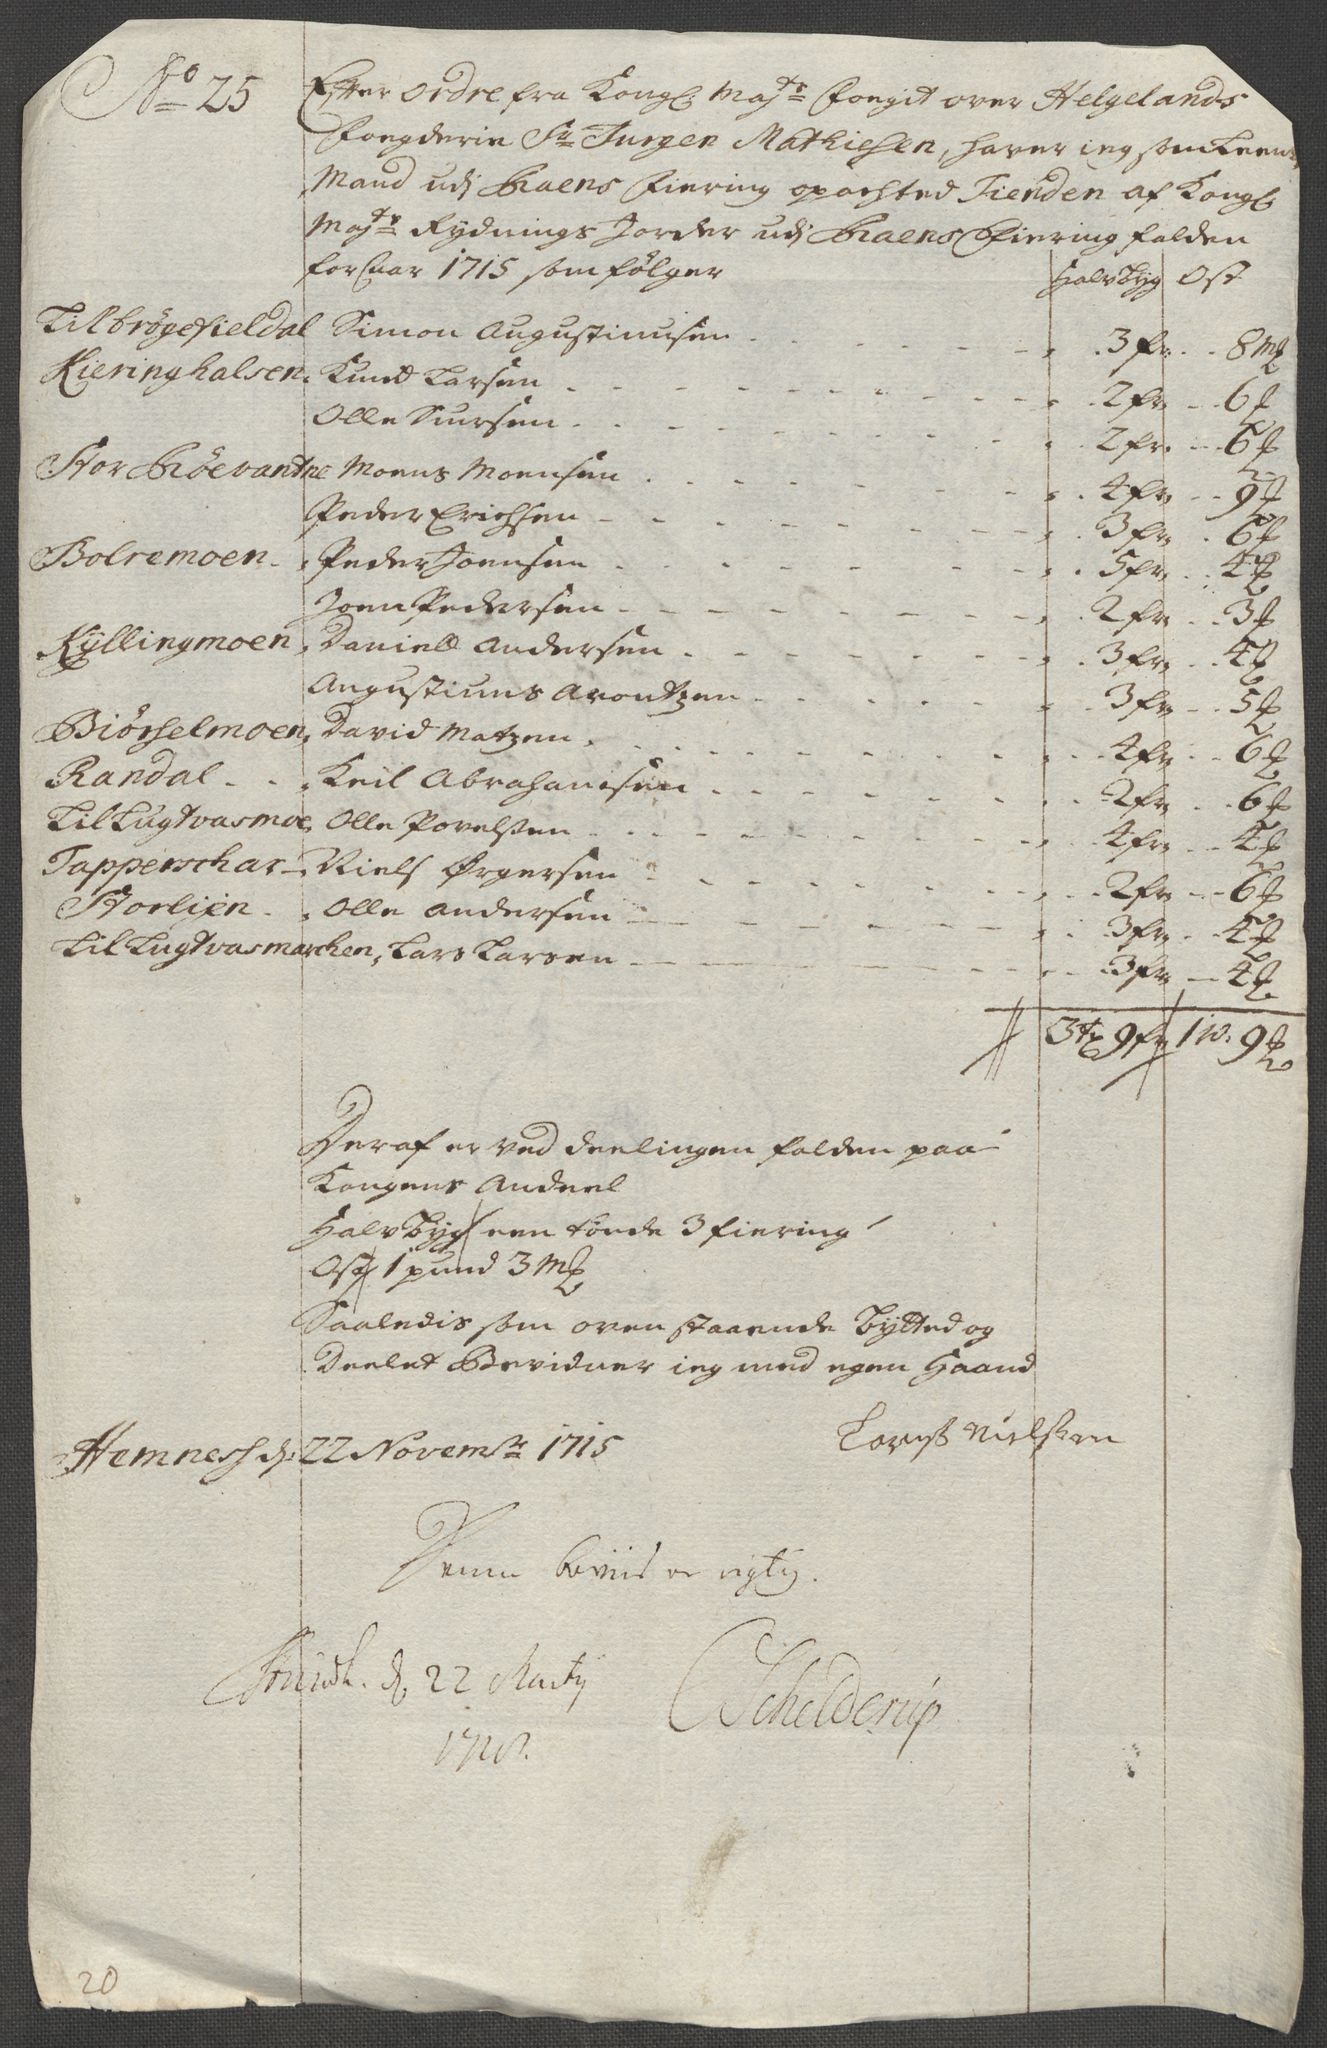 No 25
Efter Ordre fra Kongl: Maj:ts Fougit over Helgelands
Fougderie Sr Jurgen Mathiesen, haver ieg som Leens
Mand udj Raens Fiering opachted Tienden af Kongl:
Maj:ts Rydnings Jorder udj Raens Fiering falden
for Aar 1715 som følger
Halv Byg Ost
Lilbrøgefieldal Simon Augustinusen 3 fr. 8 mk
Kieringhalsen Knud Larsen 2 fr 6 mk
Olle Siursen 2 fr. 6 mk
Stor Røevantne Moens Moensen 4 fr 9 mk
Peder Erichsen 3 fr 6 mk
Bolremoen Peder Joensen 5 fr 4 mk
Joen Pedersen 2 fr 3 mk
Kyllingmoen Daniell Andersen 3 fr 4 mk
Augustinus Arontzen 3 fr 5 mk
Biørselmoen David Matzen 4 fr 6 mk
Randal Keil Abrahamsen 2 fr 6 mk
Lil Lugtvasmoe Olle Povelsen 4 fr 4 mk
Tapperschar Niels Ørgersen 2 fr 6 mk
Storlien Olle Andersen 3 fr 4 mk
Lil Lugtvasmarchen, Lars Larsen 3 fr 4 mk
3 tr 9 fr 1 w: 9 mk
Deraf er ved deelingen falden paa
Kongens Andeel
Halv Byg een tønde 3 fiering
Ost 1 pund 3 mk
Saaledis som oven staaende Bytted og
Deelet Bevidner ieg med egen Haand
Hemness d: 22 Novembr 1715 Lorns Nielsen
Denne beviis er rigtig.
d. 22 Marty CSchelderup
20